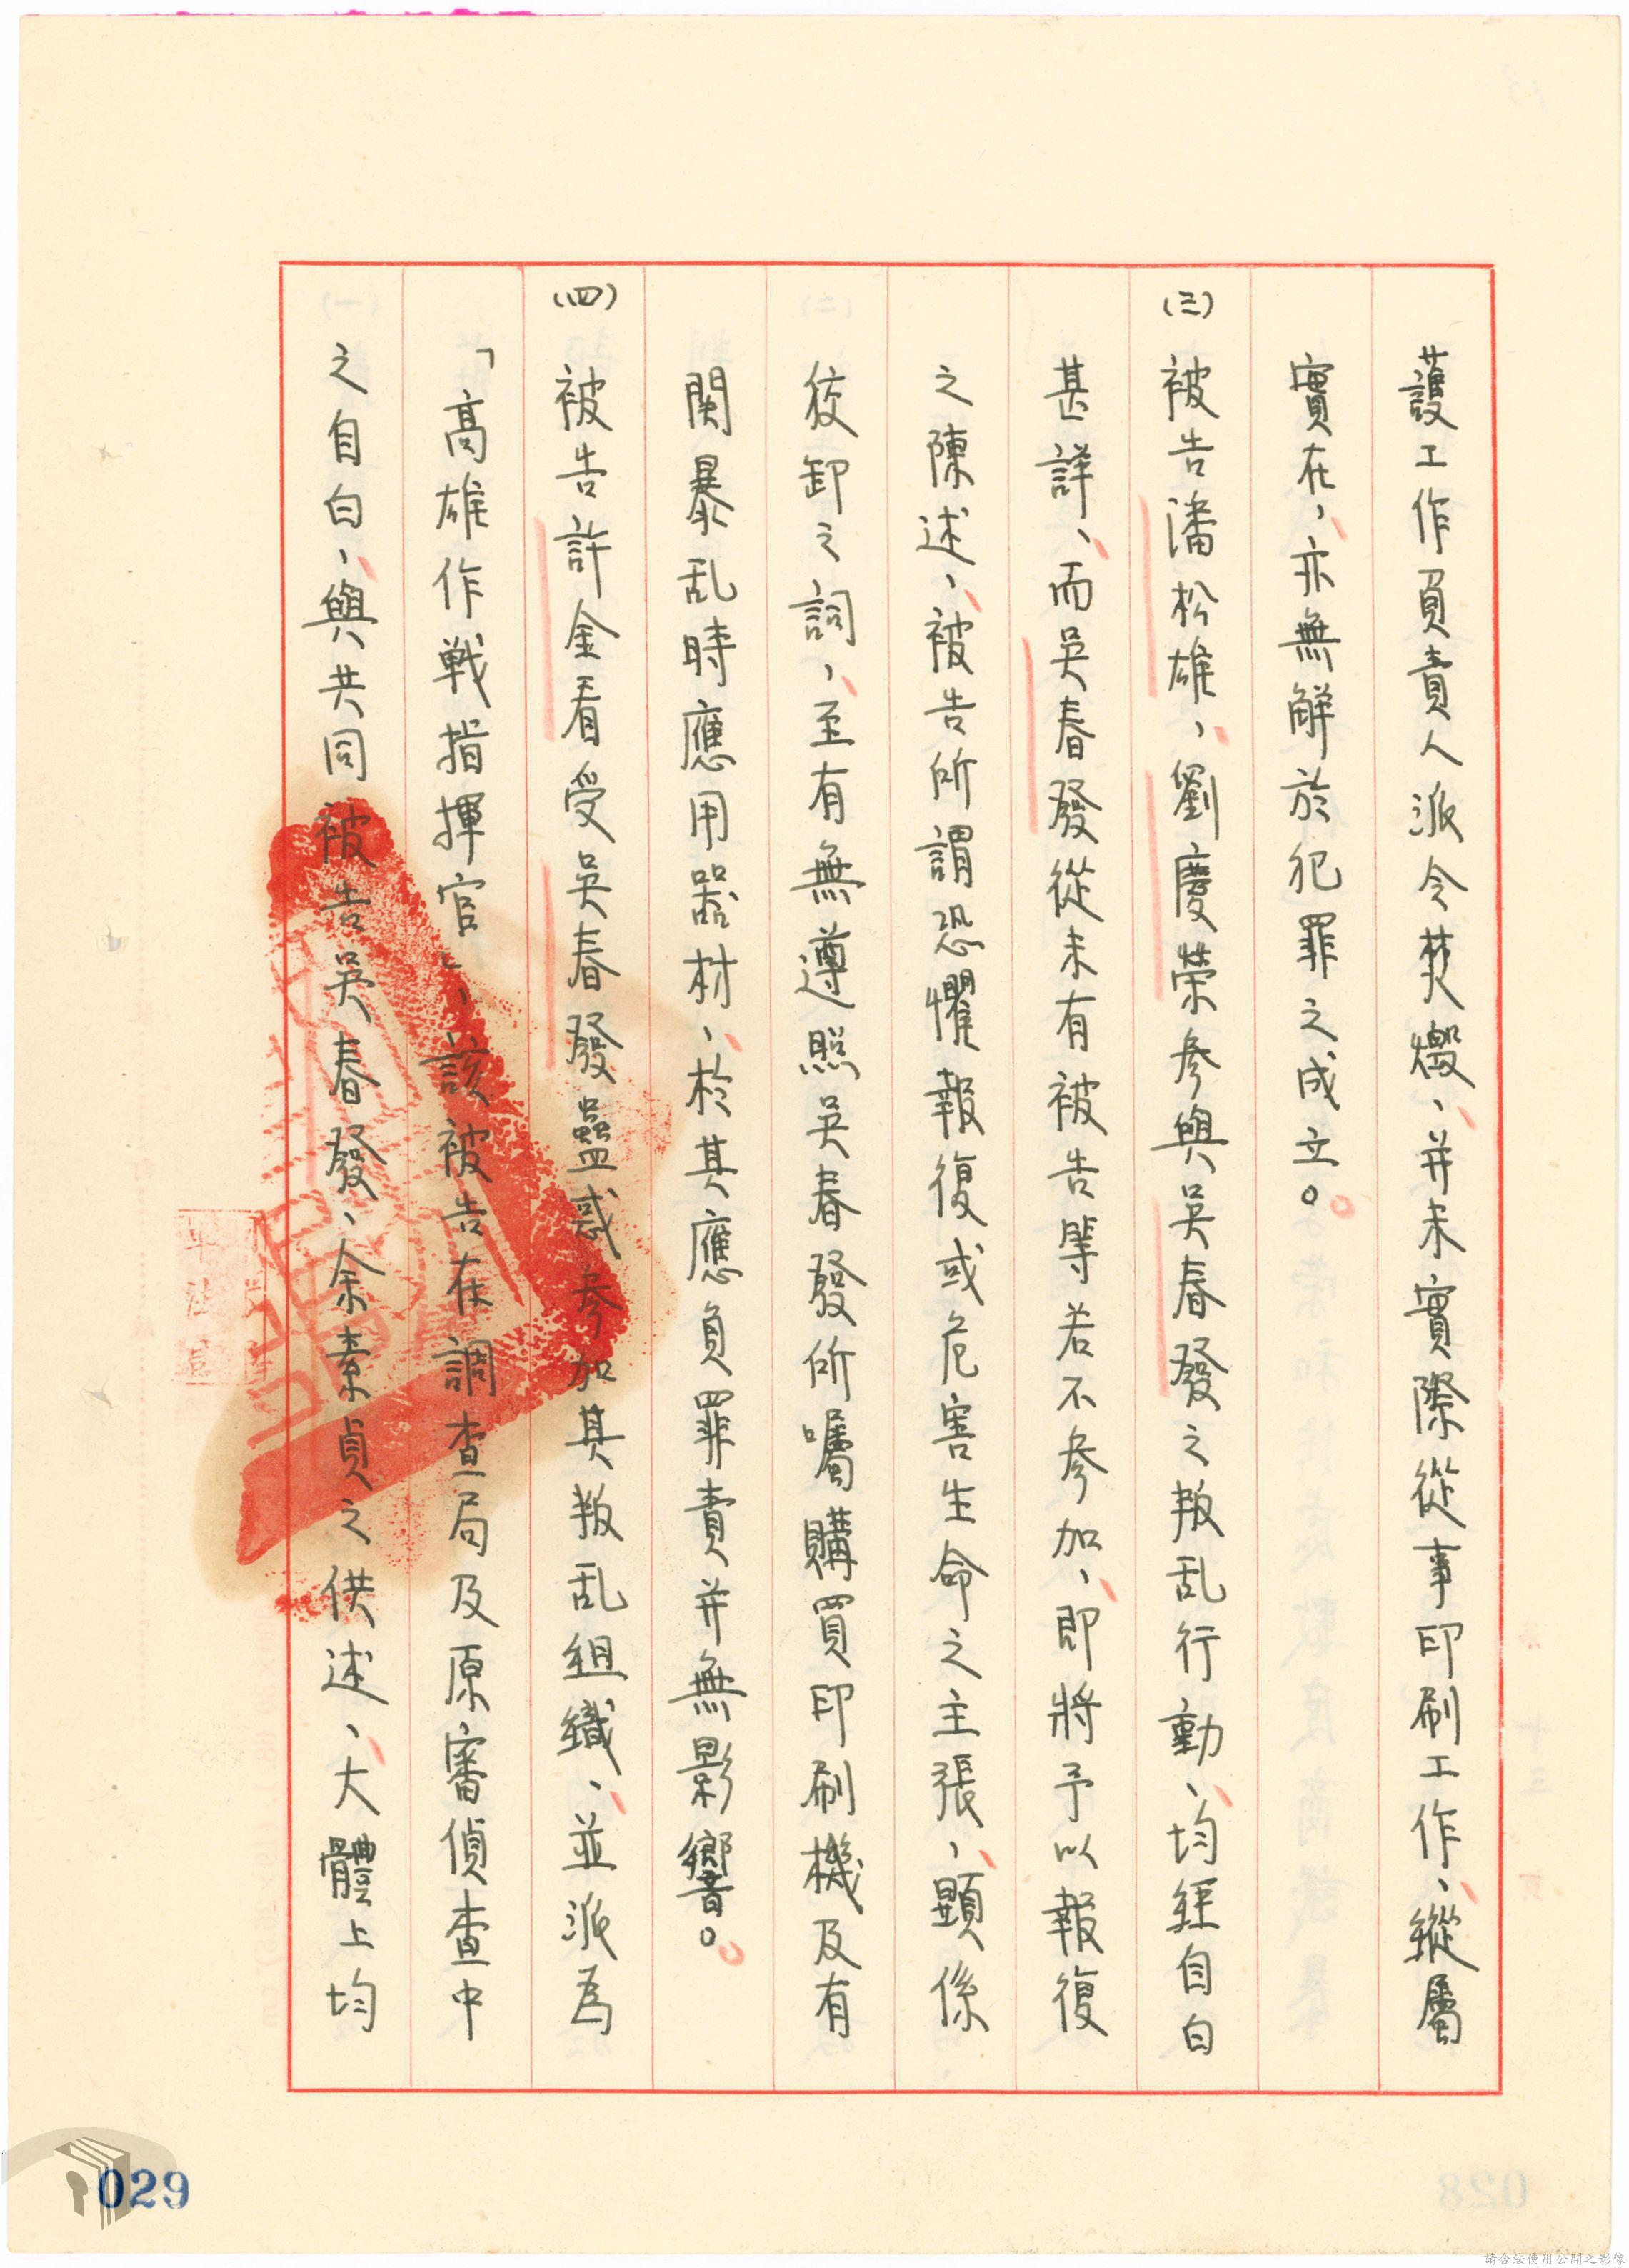 護工作負責人派令焚燬、并未實際從事印刷工作、縱屬
實在、亦無解於犯罪之成立。
(三)被告潘松雄、劉慶榮參與吳春發之叛乱行動、均經自白
甚詳、而吳春發從未有被告等若不參加、即將予以報復
之陳述、被告所謂恐懼報復或危害生命之主張、顯係
狡卸之詞、至有無遵照吳春發所囑購買印刷機及有
関暴乱時應用器材、於其應負罪責并無影響。
(四)被告許金看受吳春發蠱惑參加其叛乱組織、並派為
「高雄作戰指揮官」、該被告在調查局及原審偵查中
之自白、與共同被告吳春發、余素貞之供述、大體上均
029
請合法使用公開之影像